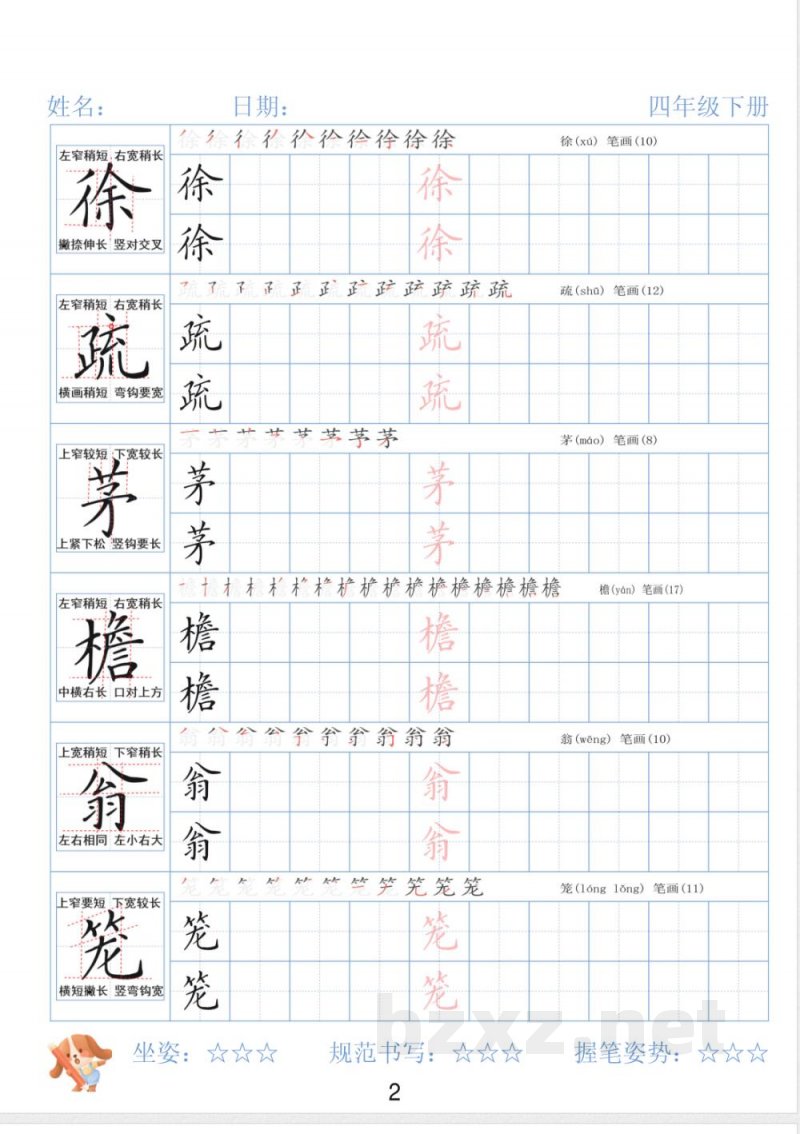 姓名： 日期： 四年级下册
徐(xú) 笔画(10)
左窄稍短 右宽稍长
徐
撇捺伸长 竖对交叉
徐 徐
徐 徐
疏(shū) 笔画(12)
左窄稍短 右宽稍长
疏
横画稍短 弯钩要宽
疏 疏
疏 疏
茅(máo) 笔画(8)
上窄较短 下宽较长
茅
上紧下松 竖钩要长
茅 茅
茅 茅
檐(yán) 笔画(17)
左窄稍短 右宽稍长
檐
中横右长 口对上方
檐 檐
檐 檐
翁(wēng) 笔画(10)
上宽稍短 下窄稍长
翁
左右相同 左小右大
翁 翁
翁 翁
笼(lóng lǒng) 笔画(11)
上窄要短 下宽较长
笼
横短撇长 竖弯钩宽
笼 笼
笼 笼
bzxz.net
坐姿：☆☆☆ 规范书写：☆☆☆ 握笔姿势：☆☆☆
2